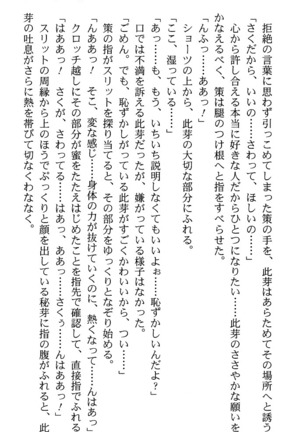 拒絶の言葉に思わず引っこめてしまった策の手を、此芽はあらためてその場所へと誘う。
「さくだから、いいの……さわって、ほしいの……」
心から許し合える本当に好きな人だからひとつになりたい……此芽のささやかな願いを
かなえるべく、策は腿のつけ根へと指をすべらせた。
「んふっ……ああっ！」
ショーツの上から、此芽の大切な部分にふれる。
「ここ、湿っている……」
「あっ……も、もう、いちいち説明しなくてもいいよぉ……恥ずかしいんだよ？」
口では不満を訴える此芽だったが、嫌がっている様子はなかった。
「ごめん。でも、恥ずかしがっている此芽がすごくかわいいから、つい……」
策の指がスリットを探り当てると、その部分をゆっくりとなぞり始める。
「んああっ！　そこ、変な感じ……身体の力が抜けていくのに、熱くなって……んはあっ」
クロッチ越しにその部分が蜜をたたえはじめたことを指先で確認して、直接指でふれる。
「はああっ！　さくが、さわってる……はあっ、ああっ……さくぅ……んはああっ！」
スリットの周縁から上のほうでぷっくりと顔を出している秘芽に指の腹がふれると、此
芽の吐息がさらに熱を帯びて切なくわななく。